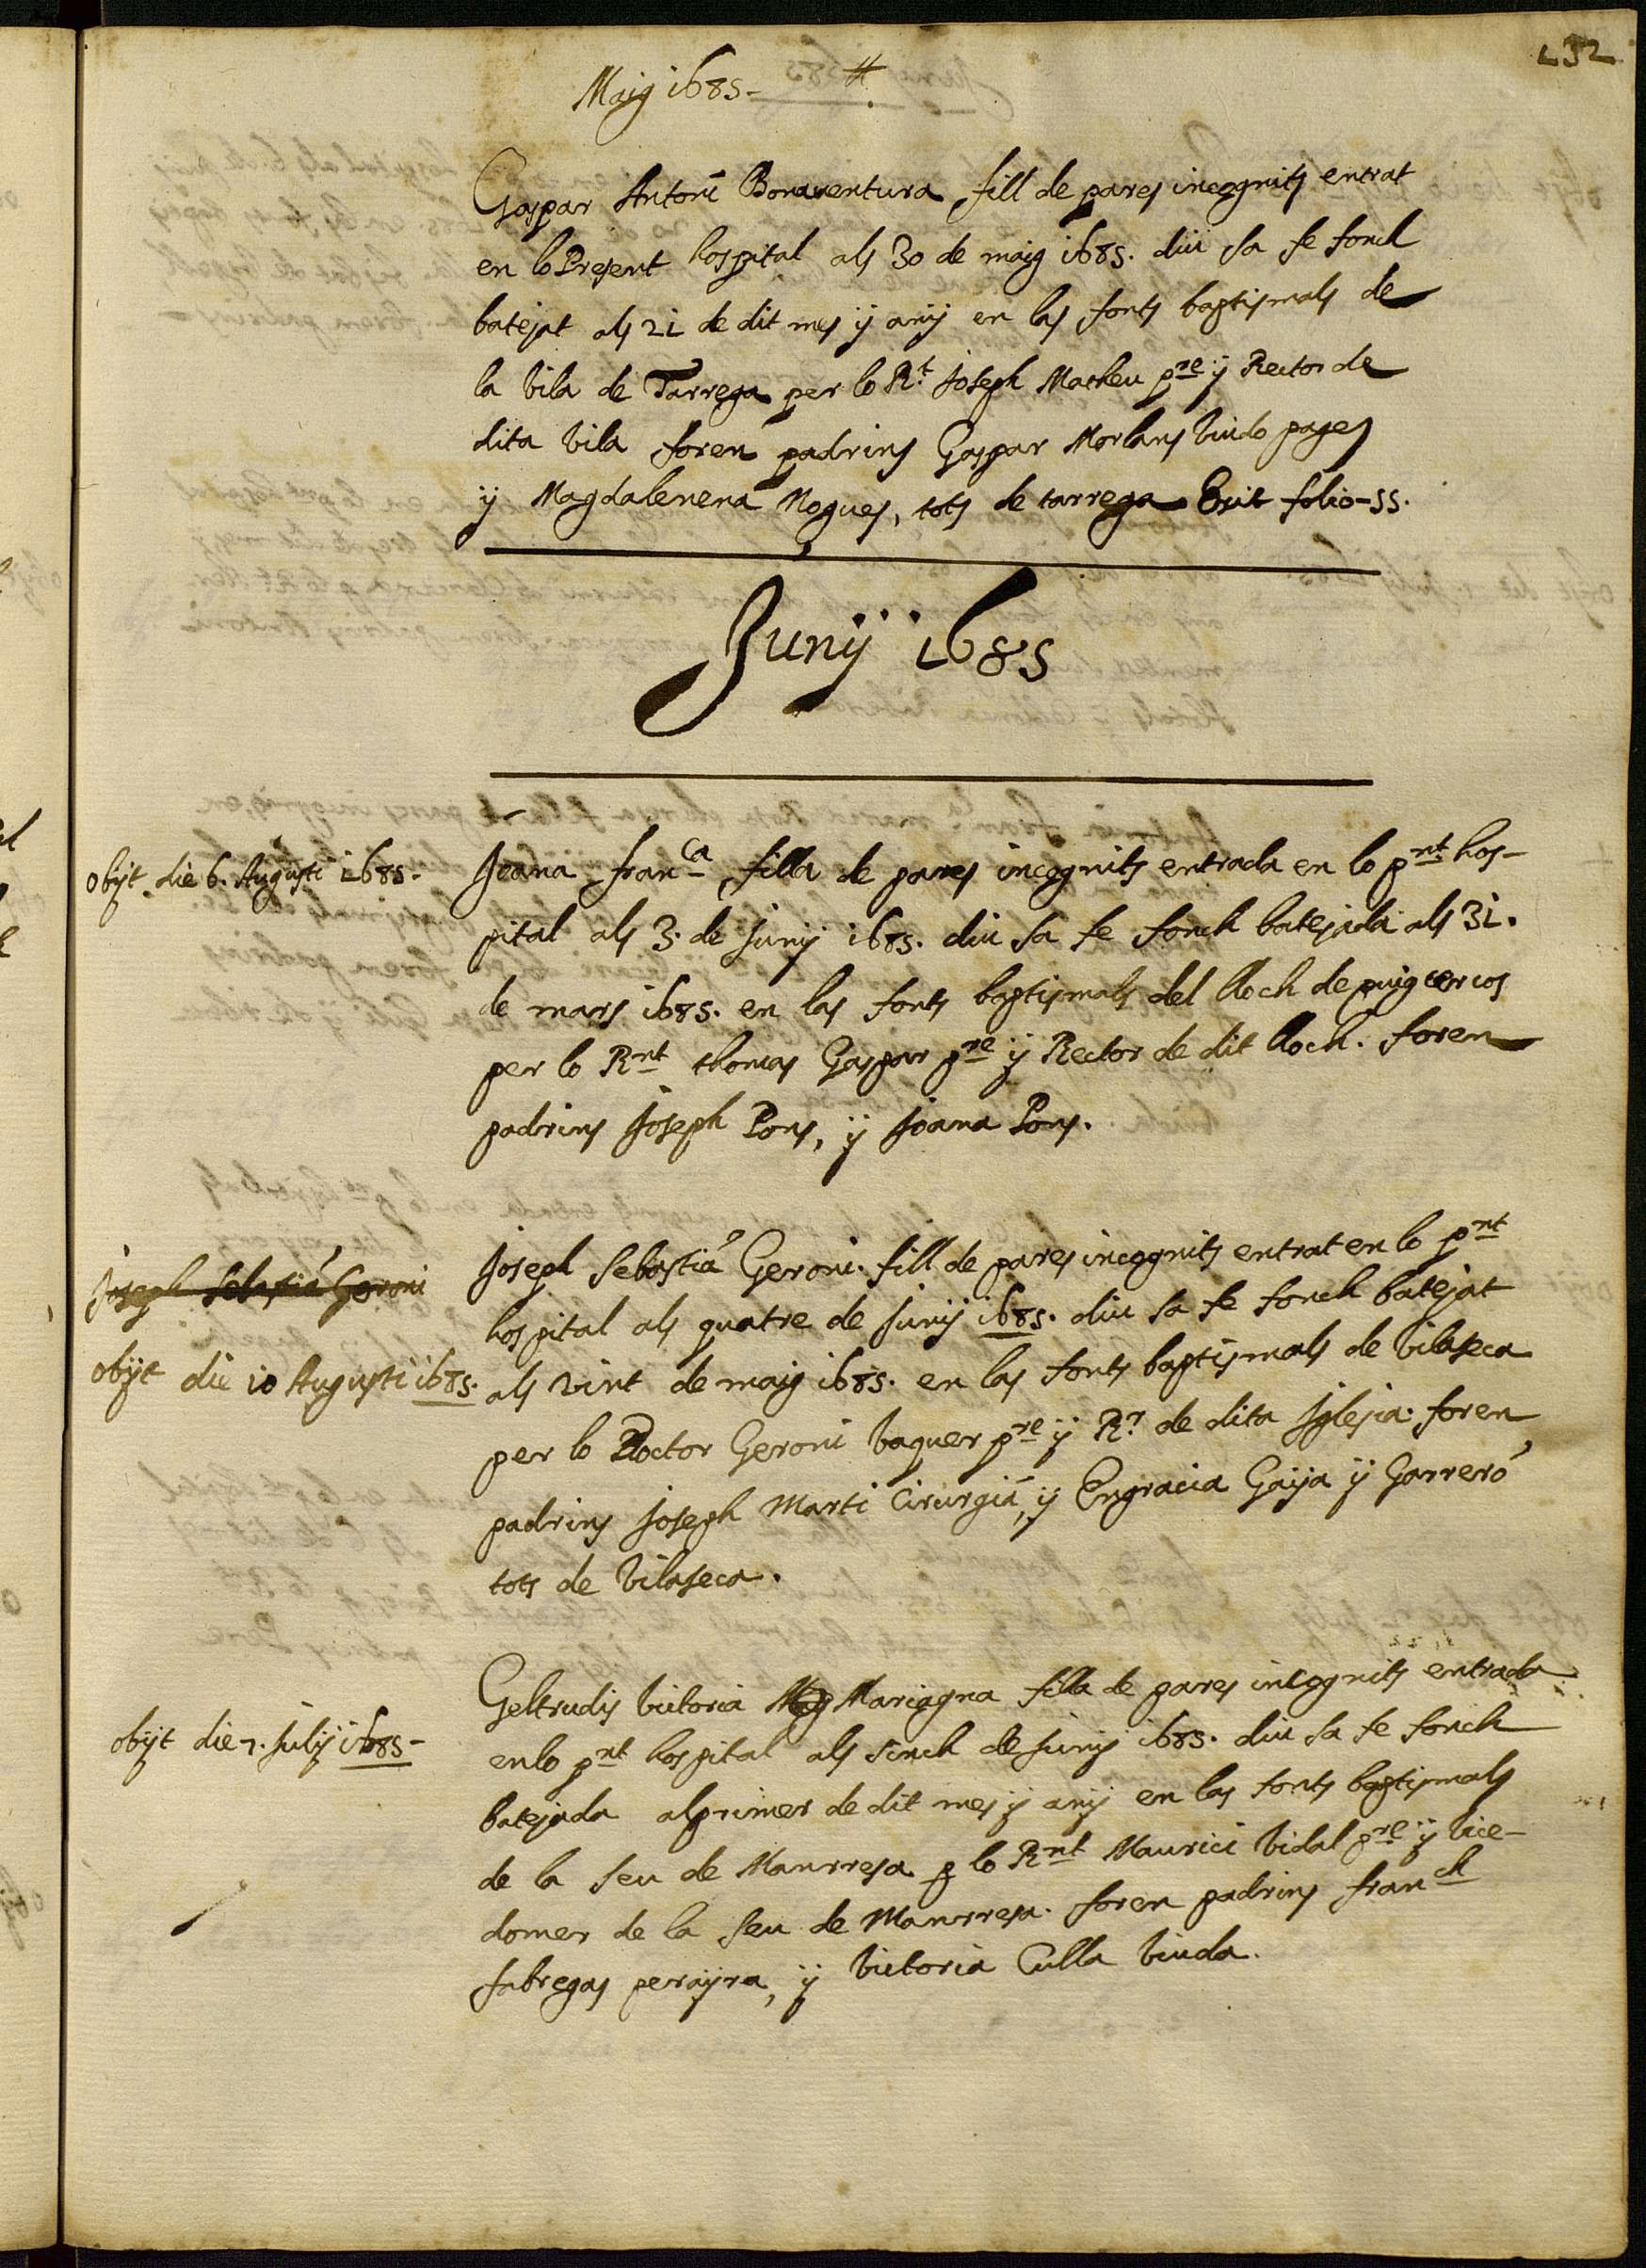 132
Maig 1685 - #.
Gaspar Antoni Bonaventura fill de pares incognits entrat
en lo Present hospital als 30 de maig 1685. diu sa fe fonch
batejat als 21 de dit mes ÿ anÿ en las fonts baptismals de
la Vila de Tarrega per lo Rt. Joseph Matheu pre ÿ Rector de
dita Vila foren padrins Gaspar Morlans Viudo pages
ÿ Magdalenena Nogues, tots de tarrega Exit folio - 55.
Junÿ 1685
obÿt die 6. Augusti 1685.
Joana franca filla de pares incognits entrada en lo pnt hos-
pital als 3. de Junÿ 1685. diu sa fe fonch batejada als 31.
de mars 1685. en las fonts baptismals del lloch de puigcercos
per lo Rnt thomas Gaspar pre ÿ Rector de dit lloch. foren
padrins Joseph Pons, ÿ Joana Pons.
Joseph Sebastiá Geroni
obÿt die 10 Augusti 1685.
Joseph Sebastiá Geroni. fill de pares incognits entrat en lo pnt
hospital als quatre de Junÿ 1685. diu sa fe fonch batejat
als vint de maig 1685. en las fonts baptismals de Vilaseca
per lo Doctor Geroni Vaquer pre ÿ Rr de dita Iglesia. foren
padrins Joseph Marti Cirurgiá, ÿ Engracia Gaÿa ÿ Garreró
tots de Vilaseca.
obÿt die 7. Julÿ 1685 -
Geltrudis Victoria Mariagna filla de pares incognits entrada
en lo pnt hospital als sinch de Junÿ 1685. diu sa fe fonch
batejada al primer de dit mes ÿ anÿ en las fonts baptismals
de la seu de Manrresa p lo Rnt Maurici Vidal pre ÿ Vice-
domer de la seu de Manrresa. foren padrins franch
fabregas peraÿra, ÿ Victoria Culla Viuda.